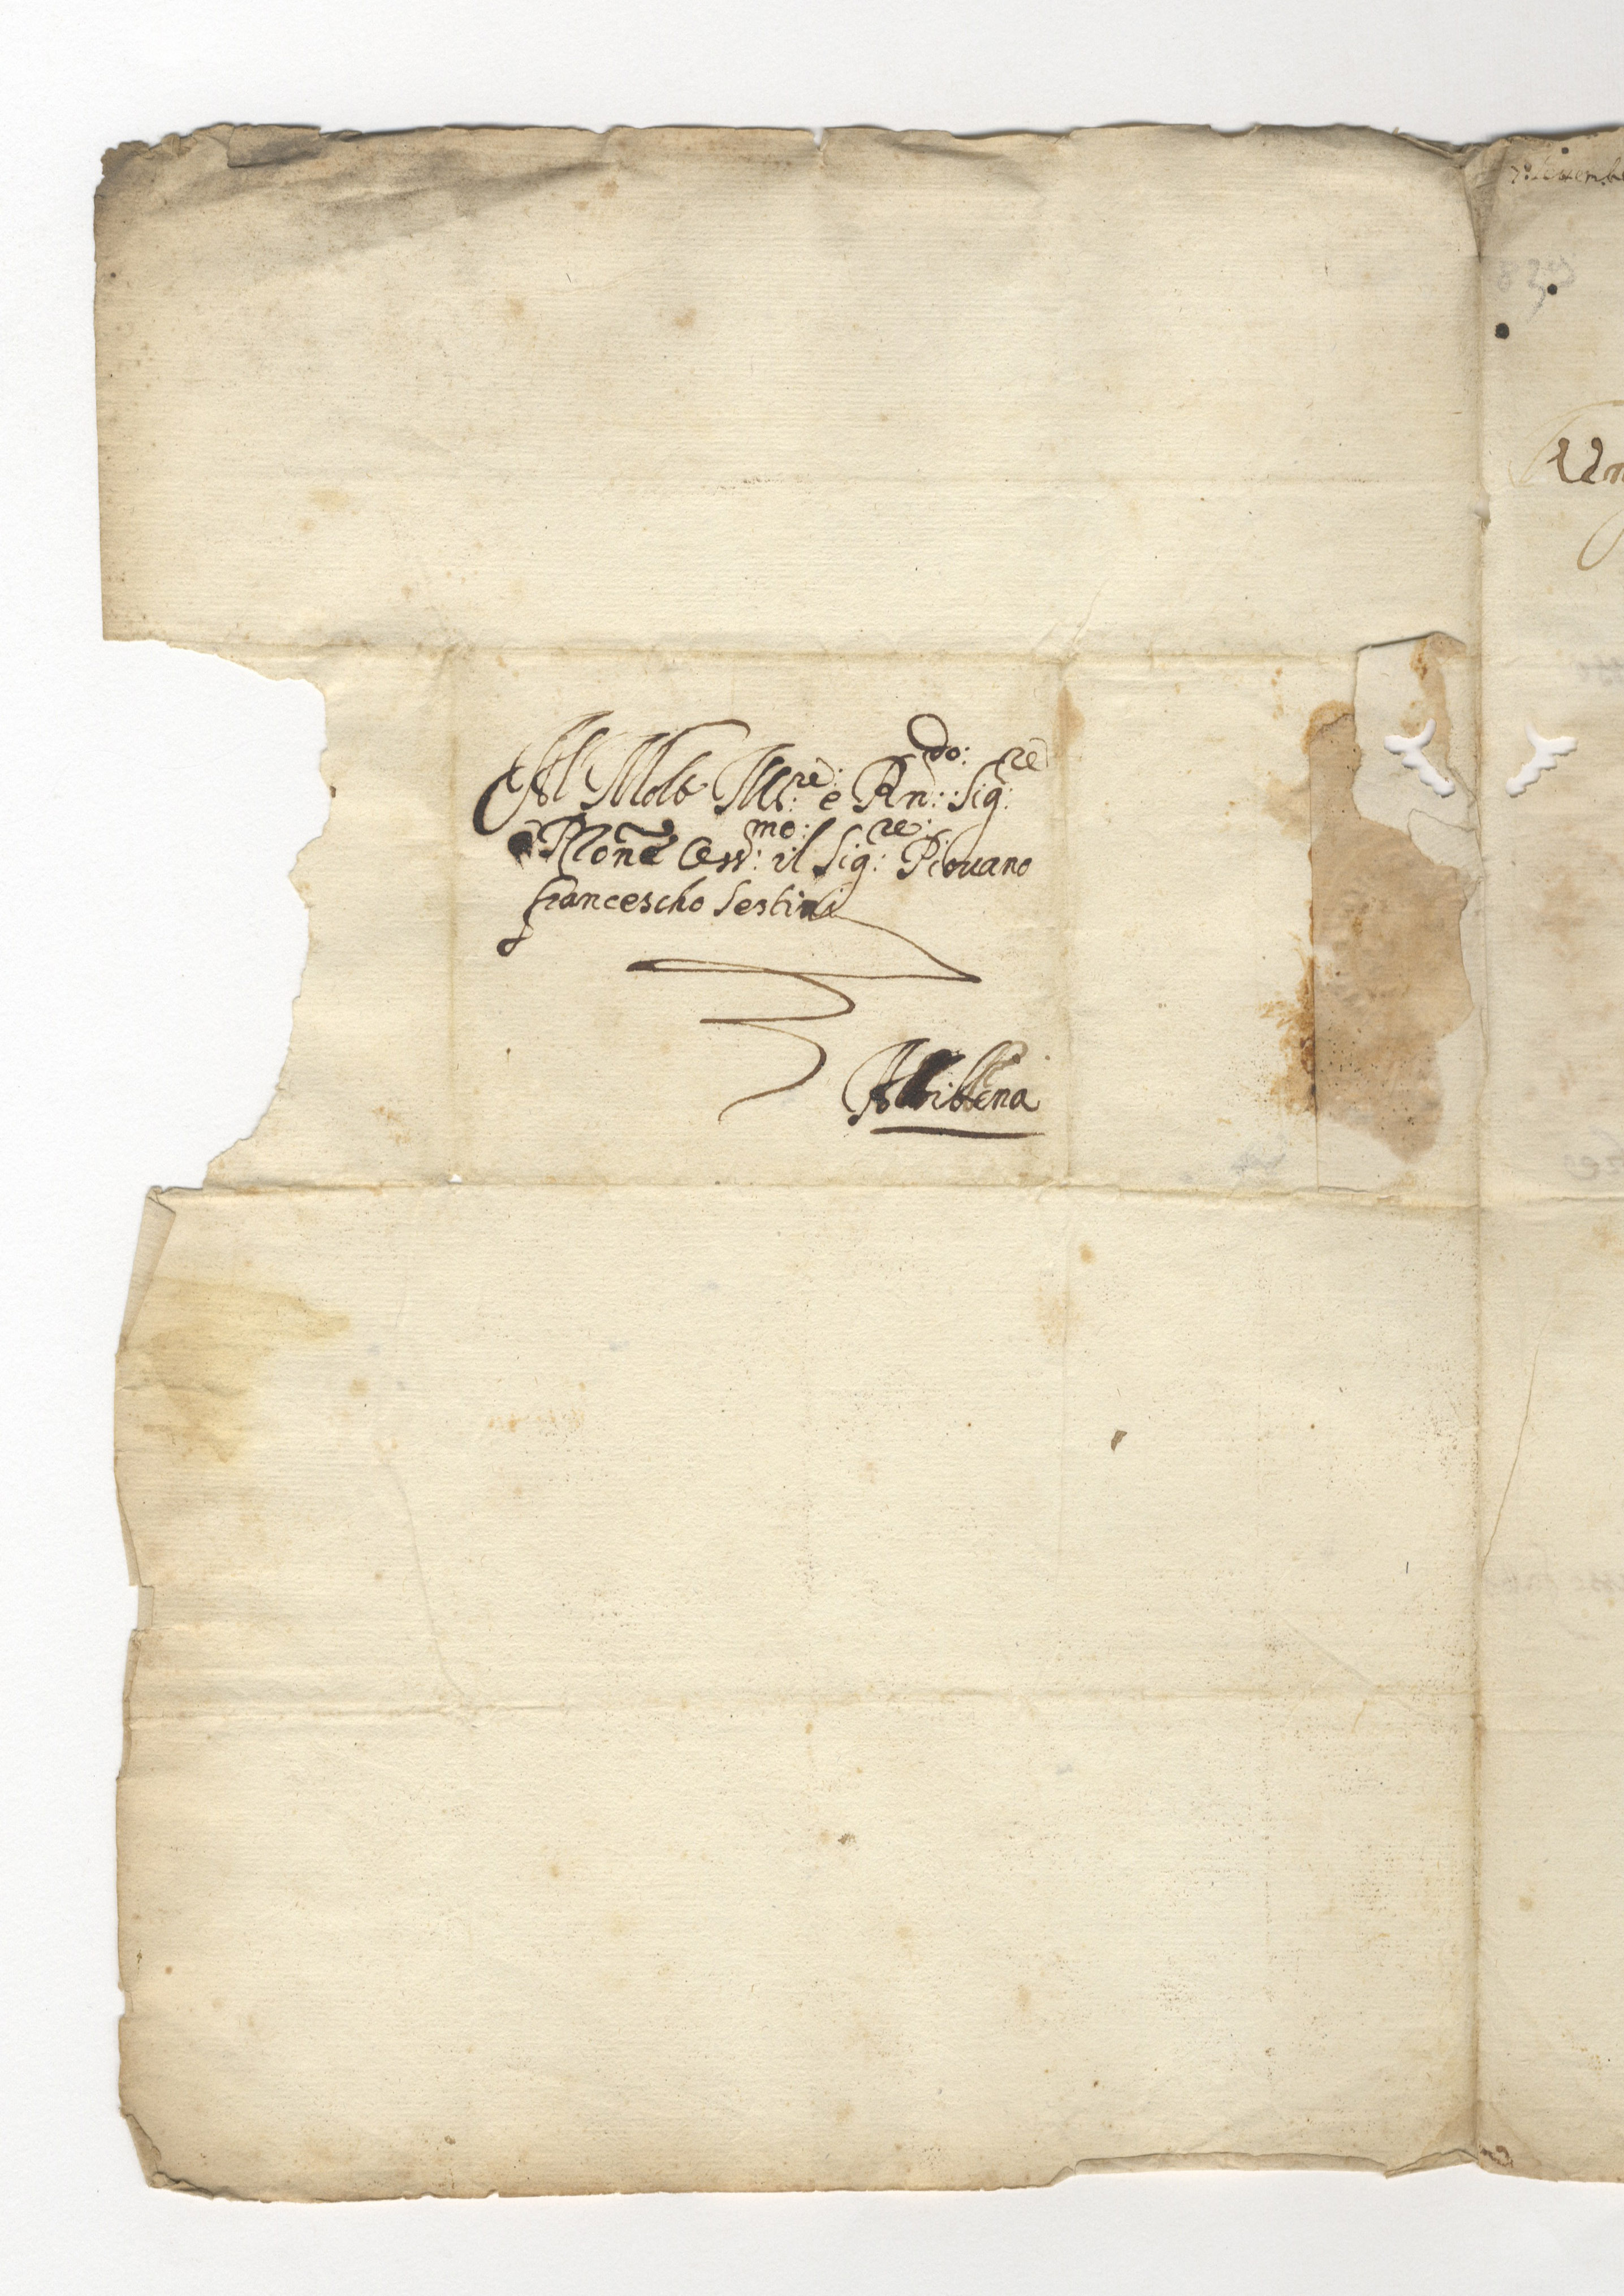 Al Molto Ill:re e Rn:do: Sig:re
e Płone Oss:mo: il Sig:re: Piovano
Francescho Sestini
Abibbena